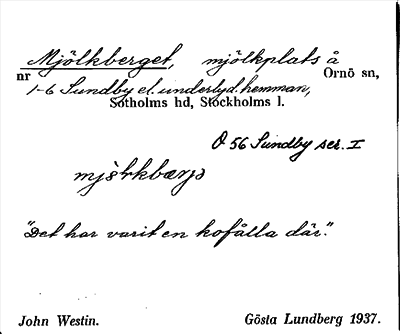 Mjölkberget, mjölkplats å
nr Ornö sn,
1-6 Sundby el. underlyd. hemman,
Sotholms hd, Stockholms l.
Ö 56 Sundby ser. I
"Det har varit en kofålla där."
John Westin. Gösta Lundberg 1937.